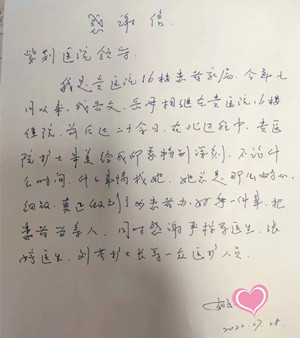 感谢信
医院领导:
我是贵医院16楼患者家属。今年七
月以来,我岳父、岳母相继在贵医院16楼
住院,前后近二十余日,在此过程中,贵医
院护士 给我印象特别深刻,不论什
么时间,什么事情找她,她总是那么耐心
细致,真正做到了 患者 每一件事,把
患者当亲人。同时感谢 医生、张
婷医生、刘 护士长等一众医护人员。
2022.07.28.